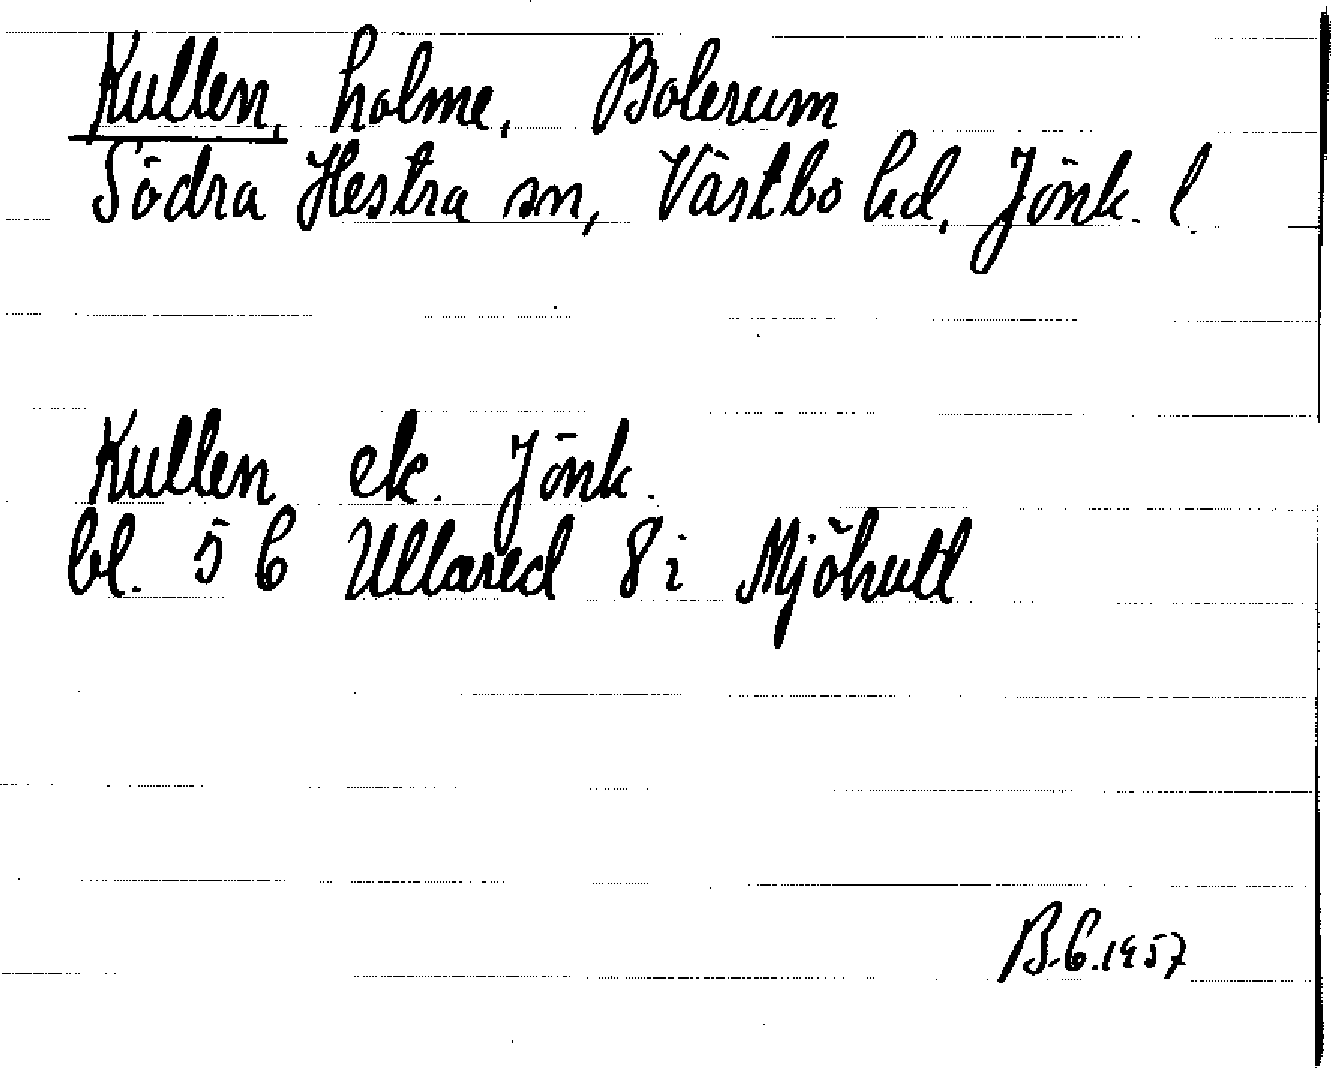 Kullen, holme, Bolerum
Södra Hestra sn, Västbo hd, Jönk. l.
Kullen ek. Jönk.
bl. 5 C Ullared 8 i Mjöhult
B.C. 1957